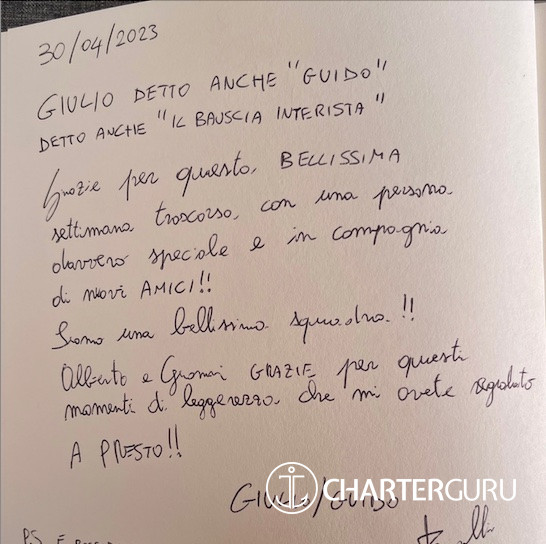 30/04/2023
GIULIO DETTO ANCHE "GUIDO"
DETTO ANCHE "IL BAUSCIA INTERISTA"
Grazie per questa BELLISSIMA
settimana trascorsa, con una persona
davvero speciale e in compagnia
di nuovi AMICI!!
Siamo una bellissima squadra!!
Alberto e GRAZIE per questi
momenti di leggerezza che mi avete regalato
A PRESTO!!
GIULIO/GUIDO
CHARTERGURU
PS E